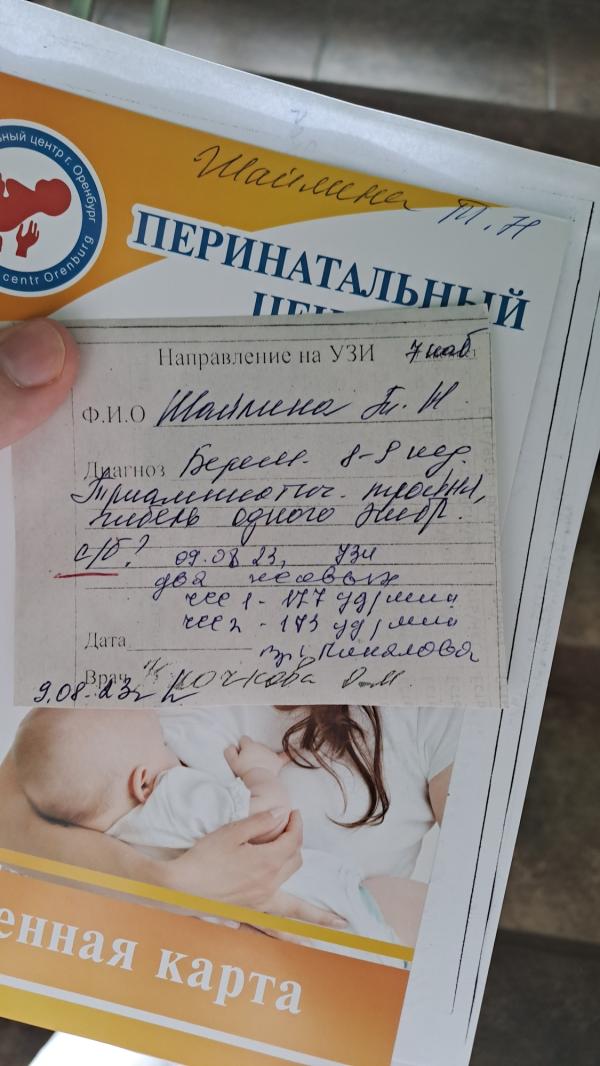 ьный центр г. Оренбург
centr Orenburg
Шаймина Т. Н
ПЕРИНАТАЛЬНЫЙ
ЦЕН
Направление на УЗИ 7 каб
Ф.И.О Шаймина Т. Н.
Диагноз Берем. 8-9 нед.
двойня,
гибель одного эмбр.
с/б?
09.08.23, УЗИ
два живых
чсс 1 - 177 уд/мин
чсс 2 - 173 уд/мин
Дата
Врач Кочкова О.М.
9.08.23г
енная карта